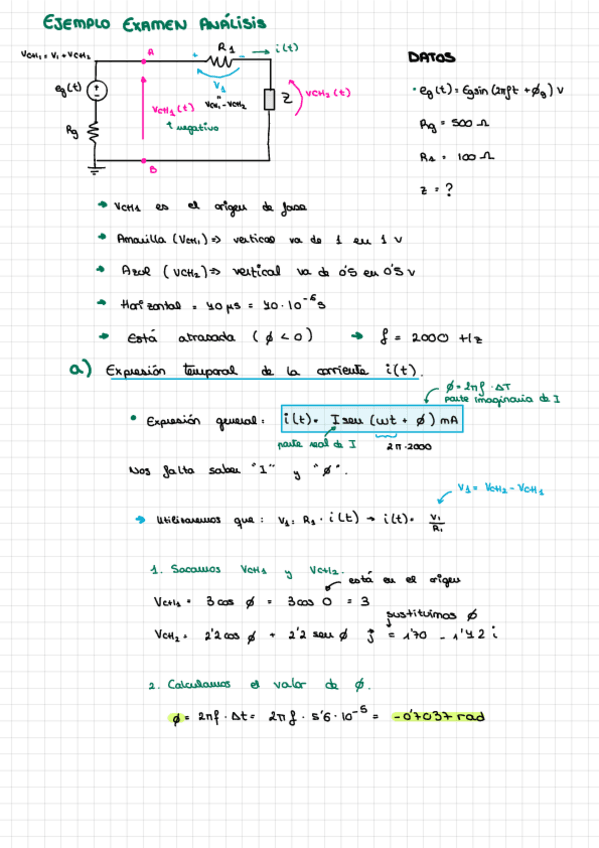 EJEMPLO EXAMEN ANÁLISIS
VCH1 = V1 + VCH2
A
+ R1 -
→ i(t)
DATOS
eg(t)
V1
=
VCH1 - VCH2
VCH1(t)
↑ negativo
Z
VCH2(t)
Rg
B
· eg(t) = Eg sin (2πft + ϕg) V
Rg = 500 Ω
R1 = 100 Ω
Z = ?
→ VCH1 es el origen de fase
→ Amarilla (VCH1) => vertical va de 1 en 1 V
→ Azul (VCH2) => vertical va de 0'5 en 0'5 V
→ Horizontal = 40 μs = 40·10⁻⁶ s
→ Está atrasada (ϕ < 0) → f = 2000 Hz
a) Expresión temporal de la corriente i(t).
ϕ = 2πf · ΔT
parte imaginaria de I
• Expresión general: i(t) = I sen (ωt + ϕ) mA
parte real de I
2π·2000
Nos falta saber "I" y "ϕ".
V1 = VCH2 - VCH1
→ Utilizaremos que: V1 = R1 · i(t) → i(t) = V1/R1
1. Sacamos VCH1 y VCH2.
está en el origen
VCH1 = 3 cos ϕ = 3 cos 0 = 3
sustituimos ϕ
VCH2 = 2'2 cos ϕ + 2'2 sen ϕ j = 1'70 - 1'42 i
2. Calculamos el valor de ϕ.
ϕ = 2πf · Δt = 2πf · 5'6 · 10⁻⁵ = -0'7037 rad